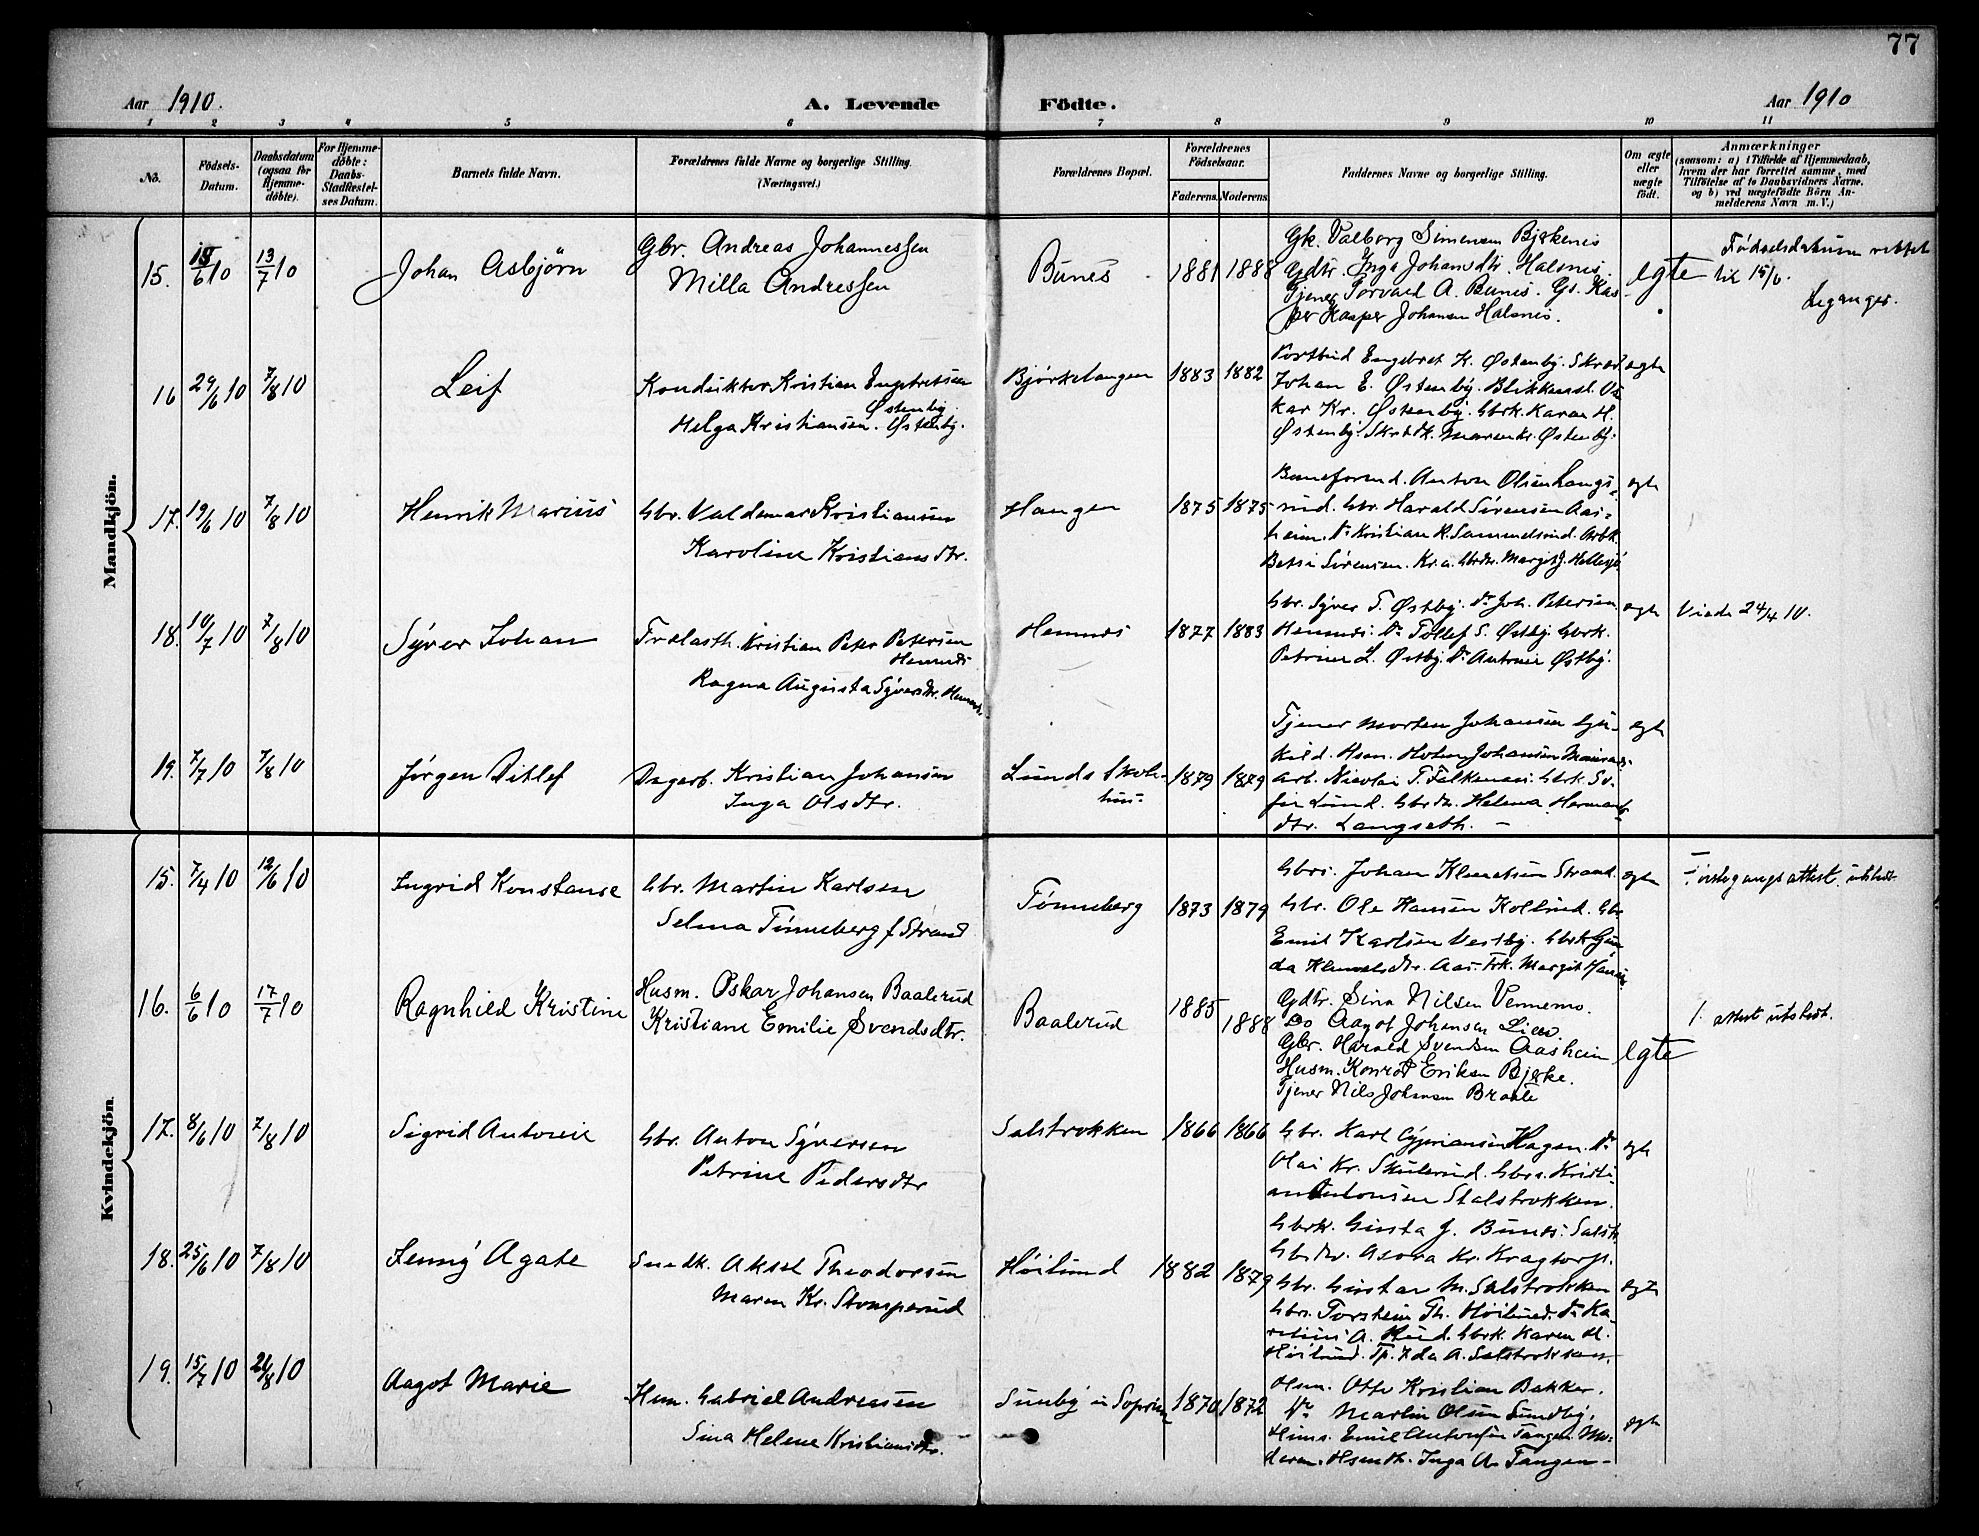 77
Aar 1910.
A. Levende Födte.
Aar 1910
1 2 3 4 5 6 7 8 9 10 11
No.
Födsels-Datum.
Daabsdatum (ogsaa for Hjemme-döbte).
For Hjemme-döbte: Daabs-Stadfæstel-ses Datum.
Barnets fulde Navn.
Forældrenes fulde Navne og borgerlige Stilling.
(Næringsvei.)
Forældrenes Bopæl.
Forældrenes Födselsaar.
Faderens. Moderens.
Faddernes Navne og borgerlige Stilling.
Om ægte eller uægte födt.
Anmærkninger
(saasom: a) i Tilfælde af Hjemmedaab,
hvem der har forrettet samme, med
Tilföielse af to Daabsvidners Navne.
og b) ved uægtefödte Börn An-
melderens Navn m. V.)
Mandkjön.
15. 15/6 10 13/7 10
Johan Asbjörn
Gbr. Andreas Johannessen
Milla Andressen
Bunes
1881 1888
Gk. Valborg Simensen Bjerkenes
Gdtr. Inga Johansdtr. Halsnes.
Tjener Torvald A. Bunes. Gs. Kas-
per Kasper Johansen Halsnes.
egte
Fødselsdatum rettet
til 15/6.
16 29/6 10 7/8 10
Leif
Konduktør Kristian Engebretsen
Østenby.
Helga Kristiansen. Østenby.
Bjørkelangen
1883 1882
Postbud Engebret K. Østenby. Skred
Johan E. Østenby. Blikkensl. Os
kar Kr. Østenby. Gbrk. Karen H.
Østenby. Maren Kr. Østenby.
egte
17. 19/6 10 7/8 10
Henrik Marius
Gbr. Valdemar Kristiansen
Karoline Kristiansdtr.
Haugen
1875 1875
Baneformd. Anton Olsen Langs-
rud. Gbr. Harald Sørensen Aas-
heim. Do Kristian K. Sammelsrud. Arbk.
Betsi Sørensen. Kr.a. Gbrdtr. Margit J. Hellesjø.
egte
18. 10/7 10 7/8 10
Sÿver Johan
Trælasth. Kristian Peter Petersen
Hemnes
Ragna Augusta Sÿversdtr. Hemnes.
Hemnes
1877 1883
Gbr. Sÿver T. Østbÿ. Do Joh. Petersen
Hemnes. Do Tollef S. Østbÿ. Gbrk.
Petrine L. Østbÿ. Do Antonie Østbÿ.
egte
Viede 24/4 10.
19. 7/7 10 7/8 10
Jørgen Ditlef
Dagarb. Kristian Johansen
Inga Olsdtr.
Lunds Skole-
hus.
1879 1879
Tjener Morten Johansen
Johansen
Arb. Nicolai T. Falkenæs. Gbrk. So-
fie Lund. Gbrdtr. Helena Hermans-
dtr. Langseth. –
egte
Kvindekjön.
15. 7/4 10 12/6 10
Ingrid Konstanse
Gbr. Martin Karlsen
Selma Tønneberg f. Strand
Tønneberg
1873 1879
Gbrs. Johan Klemetsen Strand.
Gbr. Ole Hansen Kollerud. Gbr.
Emil Karlsen Vestby. Gbrk. Gun
da Klemetsdtr. Aas. Frk. Margit Hansen
egte
attest utstedt.
16. 6/6 10 17/7 10
Ragnhild Kristine
Husm. Oskar Johansen Baalerud
Kristiane Emilie Svendsdtr.
Baalerud
1885
1888
Gdtr. Sina Nilsen Vennemo.
Do Aagot Johansen Lien
Gbr. Harald Svendsen Aasheim
Husm. Konrad Eriksen Bjerke.
Tjener Nils Johansen Braate
egte
1. attest utstedt.
17. 8/6 10 7/8 10
Sigrid Antonie
Gbr. Anton Sÿversen
Petrine Pedersdtr
Salstrokken
1866 1866
Gbr. Karl Cÿpriansen Hagen. Do
Olai Kr. Skulerud. Gbrs. Kristi-
an Antonsen Stalstrokken.
Gbrk. Gusta J. Bunes. Salstr.
egte
18. 25/6 10 7/8 10
Jennÿ Agate
Snedk. Aksel Theodorsen
Maren Kr. Stomperud
Høilund
1882 1879
Gbrdtr. Asora Kr. Kragtorp.
Gbr. Gustav M. Salstrokken
Gbrs. Torstein Th. Høilund. Do Ka-
relius A. Rud. Gbrk. Karen M.
Høilund. Tp. Ida A. Salstrokken.
egte
19. 15/7 10 21/8 10
Aagot Marie
Hsm. Gabriel Andreasen
Sina Helene Kristiansdtr.
Sunby
1870 1872
Hsm. Otto Kristian Bakker.
Do Martin Olsen Sundby.
Hsms. Emil Antonsen Tangen. Mo-
deren. Hsmdtr. Inga A. Tangen –
egte